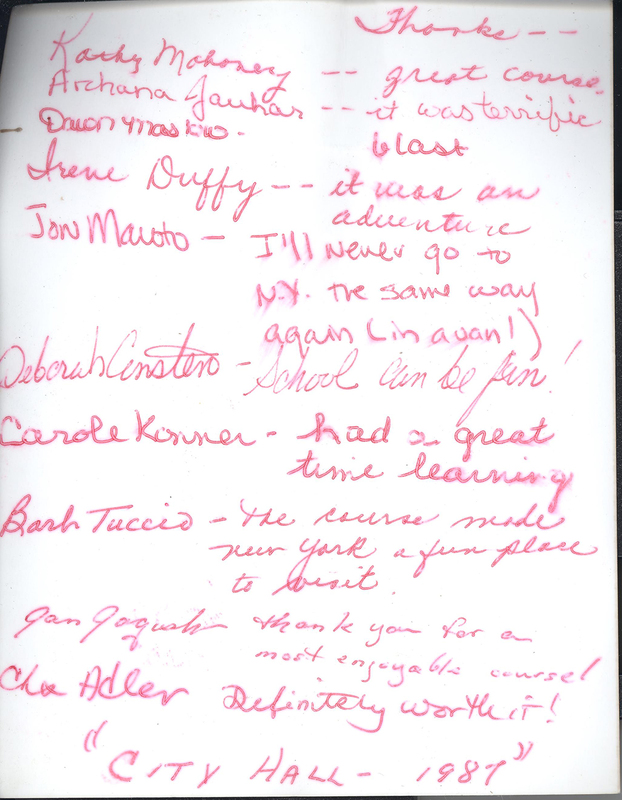 Thanks --
Kathy Mahoney -- great course.
Archana Jauhar -- it was terrific
Dawn blast
Irene Duffy -- it was an
adventure
Jon Maroto - I'll never go to
N.Y. the same way
again (in a van!)
Deborah - School can be fun!
Carole Konner - had a great
time learning
Barb Tuccio - the course made
new york a fun place
to visit.
Jan thank you for a
most enjoyable course!
Adler Definitely worth it!
"CITY HALL - 1987"